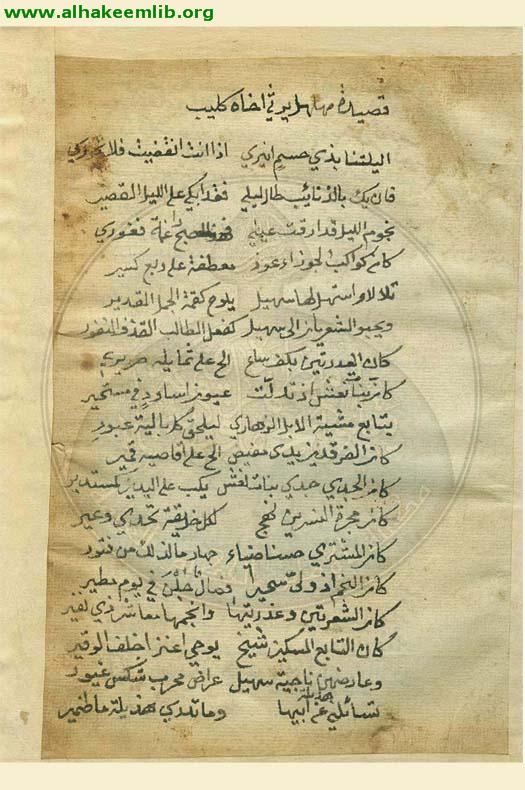 www.alhakeemlib.org
قصيدة مهلهل يرثي اخاه كليب
اليلتنا بذي حسم انيري اذا انت انقضيت فلا تحوري
فان يك بالذنايب طال ليلي فقد ابكي على الليل القصير
نجوم الليل قد ارقت عيني فغوري
كان كواكب الجوزا عوذ معطفة على ربع كسير
تلالا واستهل لها سهيل يلوح كقمة الجمل الفدير
ويحبو الشعريان الى سهيل كفعل الطالب القذف النفور
كان العذرتين بكف ساع الح على تمايله ضرير
كان بنات نعش اذ تدلت في مستحير
تتابع مشية الابل الزهاري ليلحق كل تالية عبور
كان الفرقدين يدي مفيض الح على اقاصيه قمير
كان الجدي جدي بنات نعش يكب على اليدين بمستدير
كان مجرة النسرين نهج لكل تحدي وعير
كان المشتري حسنا ضياء
كان النجم اذ ولى سحيرا فصال جلن في يوم مطير
كان الشعرتين وانجمها معاشر ذي
كان التابع المسكين شيخ يوحي اخلف الوقير
ناجية سهيل عراض مجرب شكس غيور
تسائلني عن ابيها وما تدري ما ضمير